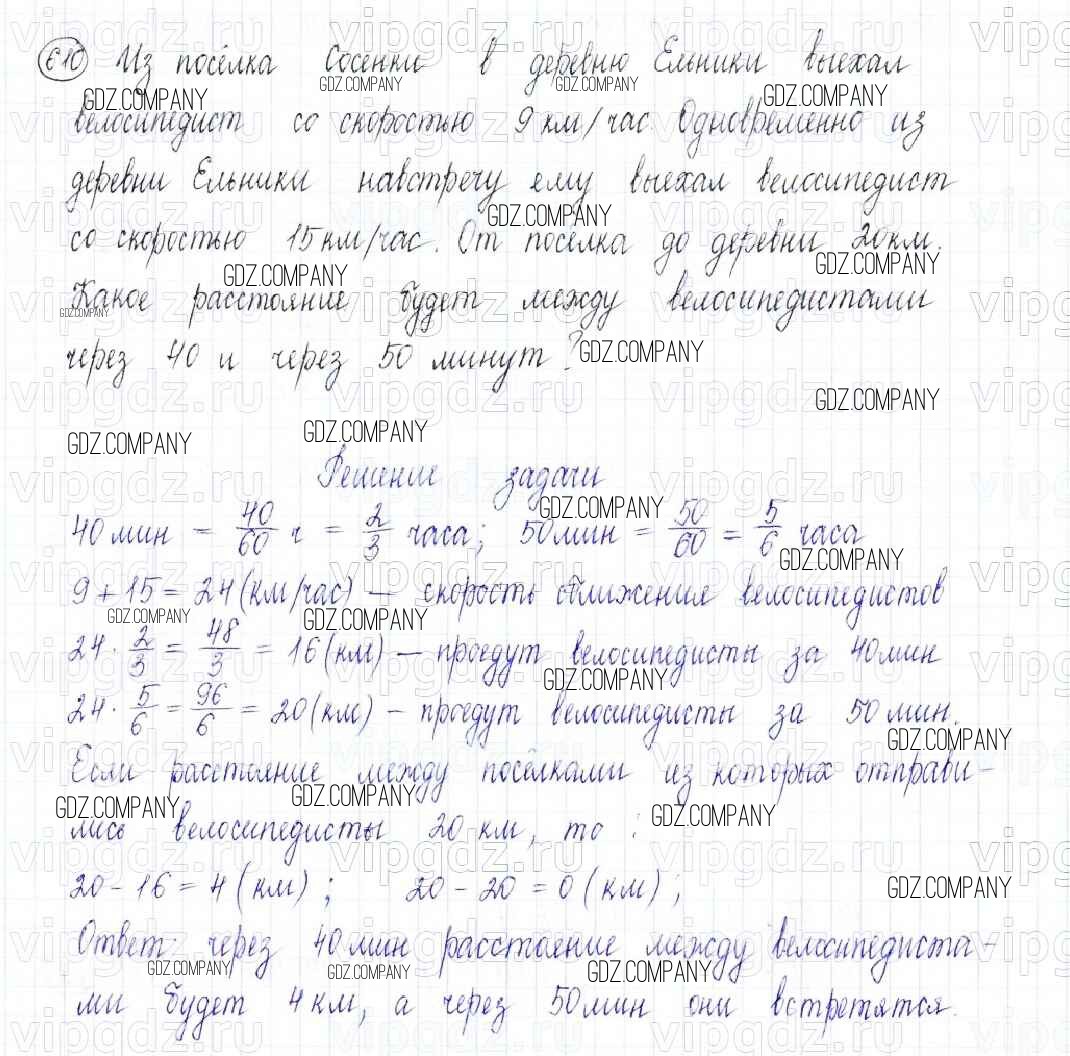 610 Из посёлка Сосенки в деревню Ельники выехал
велосипедист со скоростью 9 км/час. Одновременно из
деревни Ельники навстречу ему выехал велосипедист
со скоростью 15 км/час. От посёлка до деревни 20 км.
Какое расстояние будет между велосипедистами
через 40 и через 50 минут?
Решение задачи
40 мин = 40/60 ч = 2/3 часа; 50 мин = 50/60 = 5/6 часа
9 + 15 = 24 (км/час) — скорость сближения велосипедистов
24 · 2/3 = 48/3 = 16 (км) — проедут велосипедисты за 40 мин
24 · 5/6 = 96/6 = 20 (км) — проедут велосипедисты за 50 мин.
Если расстояние между посёлками из которых отправи-
лись велосипедисты 20 км, то :
20 - 16 = 4 (км) ; 20 - 20 = 0 (км) ;
Ответ: через 40 мин расстояние между велосипедиста-
ми будет 4 км, а через 50 мин они встретятся.
GDZ.COMPANY
vipgdz.ru